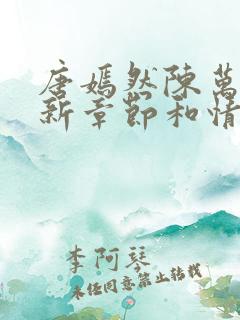 唐嫣然陳萬
新章節和情
李阿琴
未经同意禁止转载